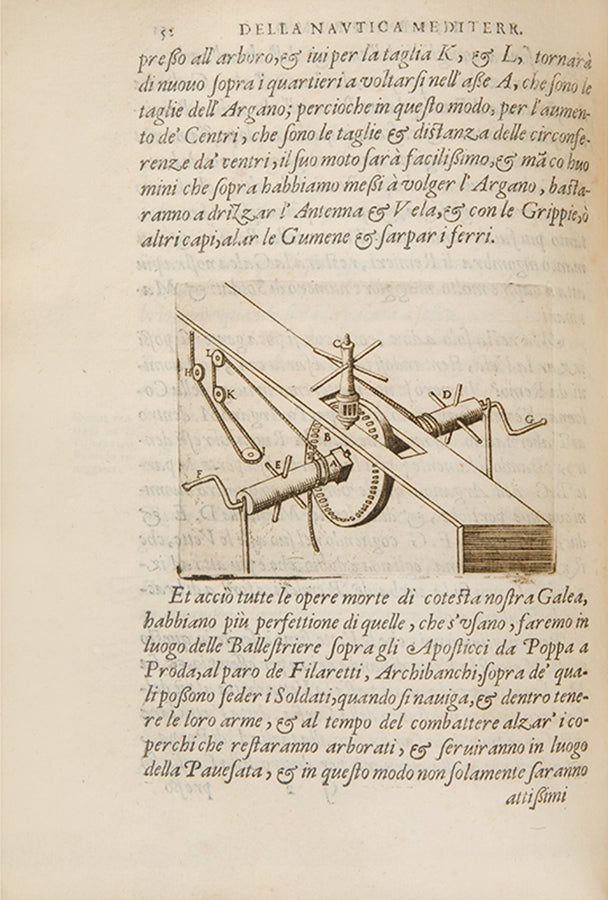 52 DELLA NAVTICA MEDITERR.
preßo all'arboro, & iui per la taglia K, & L, tornarà
di nuouo sopra i quartieri a voltarsi nell'aße A, che sono le
taglie dell'Argano; percioche in questo modo, per l'aumen-
to de' Centri, che sono le taglie & distanza delle circonfe-
renze da' ventri, il suo moto sarà facilißimo, & mā co huo
mini che sopra habbiamo meßi à volger l'Argano, basta-
ranno a drizzar l'Antenna & Vela, & con le Grippie, ò
altri capi, alar le Gumene & sarpar i ferri.
C
L
H
K
D
G
B
I
A
E
F
Et acciò tutte le opere morte di cotesta nostra Galea,
habbiano più perfettione di quelle, che s'vsano, faremo in
luogo delle Ballestriere sopra gli Aposticci da Poppa a
Proda, al paro de Filaretti, Archibanchi, sopra de' qua-
li poßono seder i Soldati, quando si nauiga, & dentro tene-
re le loro arme, & al tempo del combattere alzar' i co-
perchi che restaranno arborati, & seruiranno in luogo
della Pauesata, & in questo modo non solamente saranno
attißimi